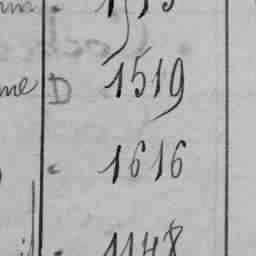 me D 1519
1616
1148